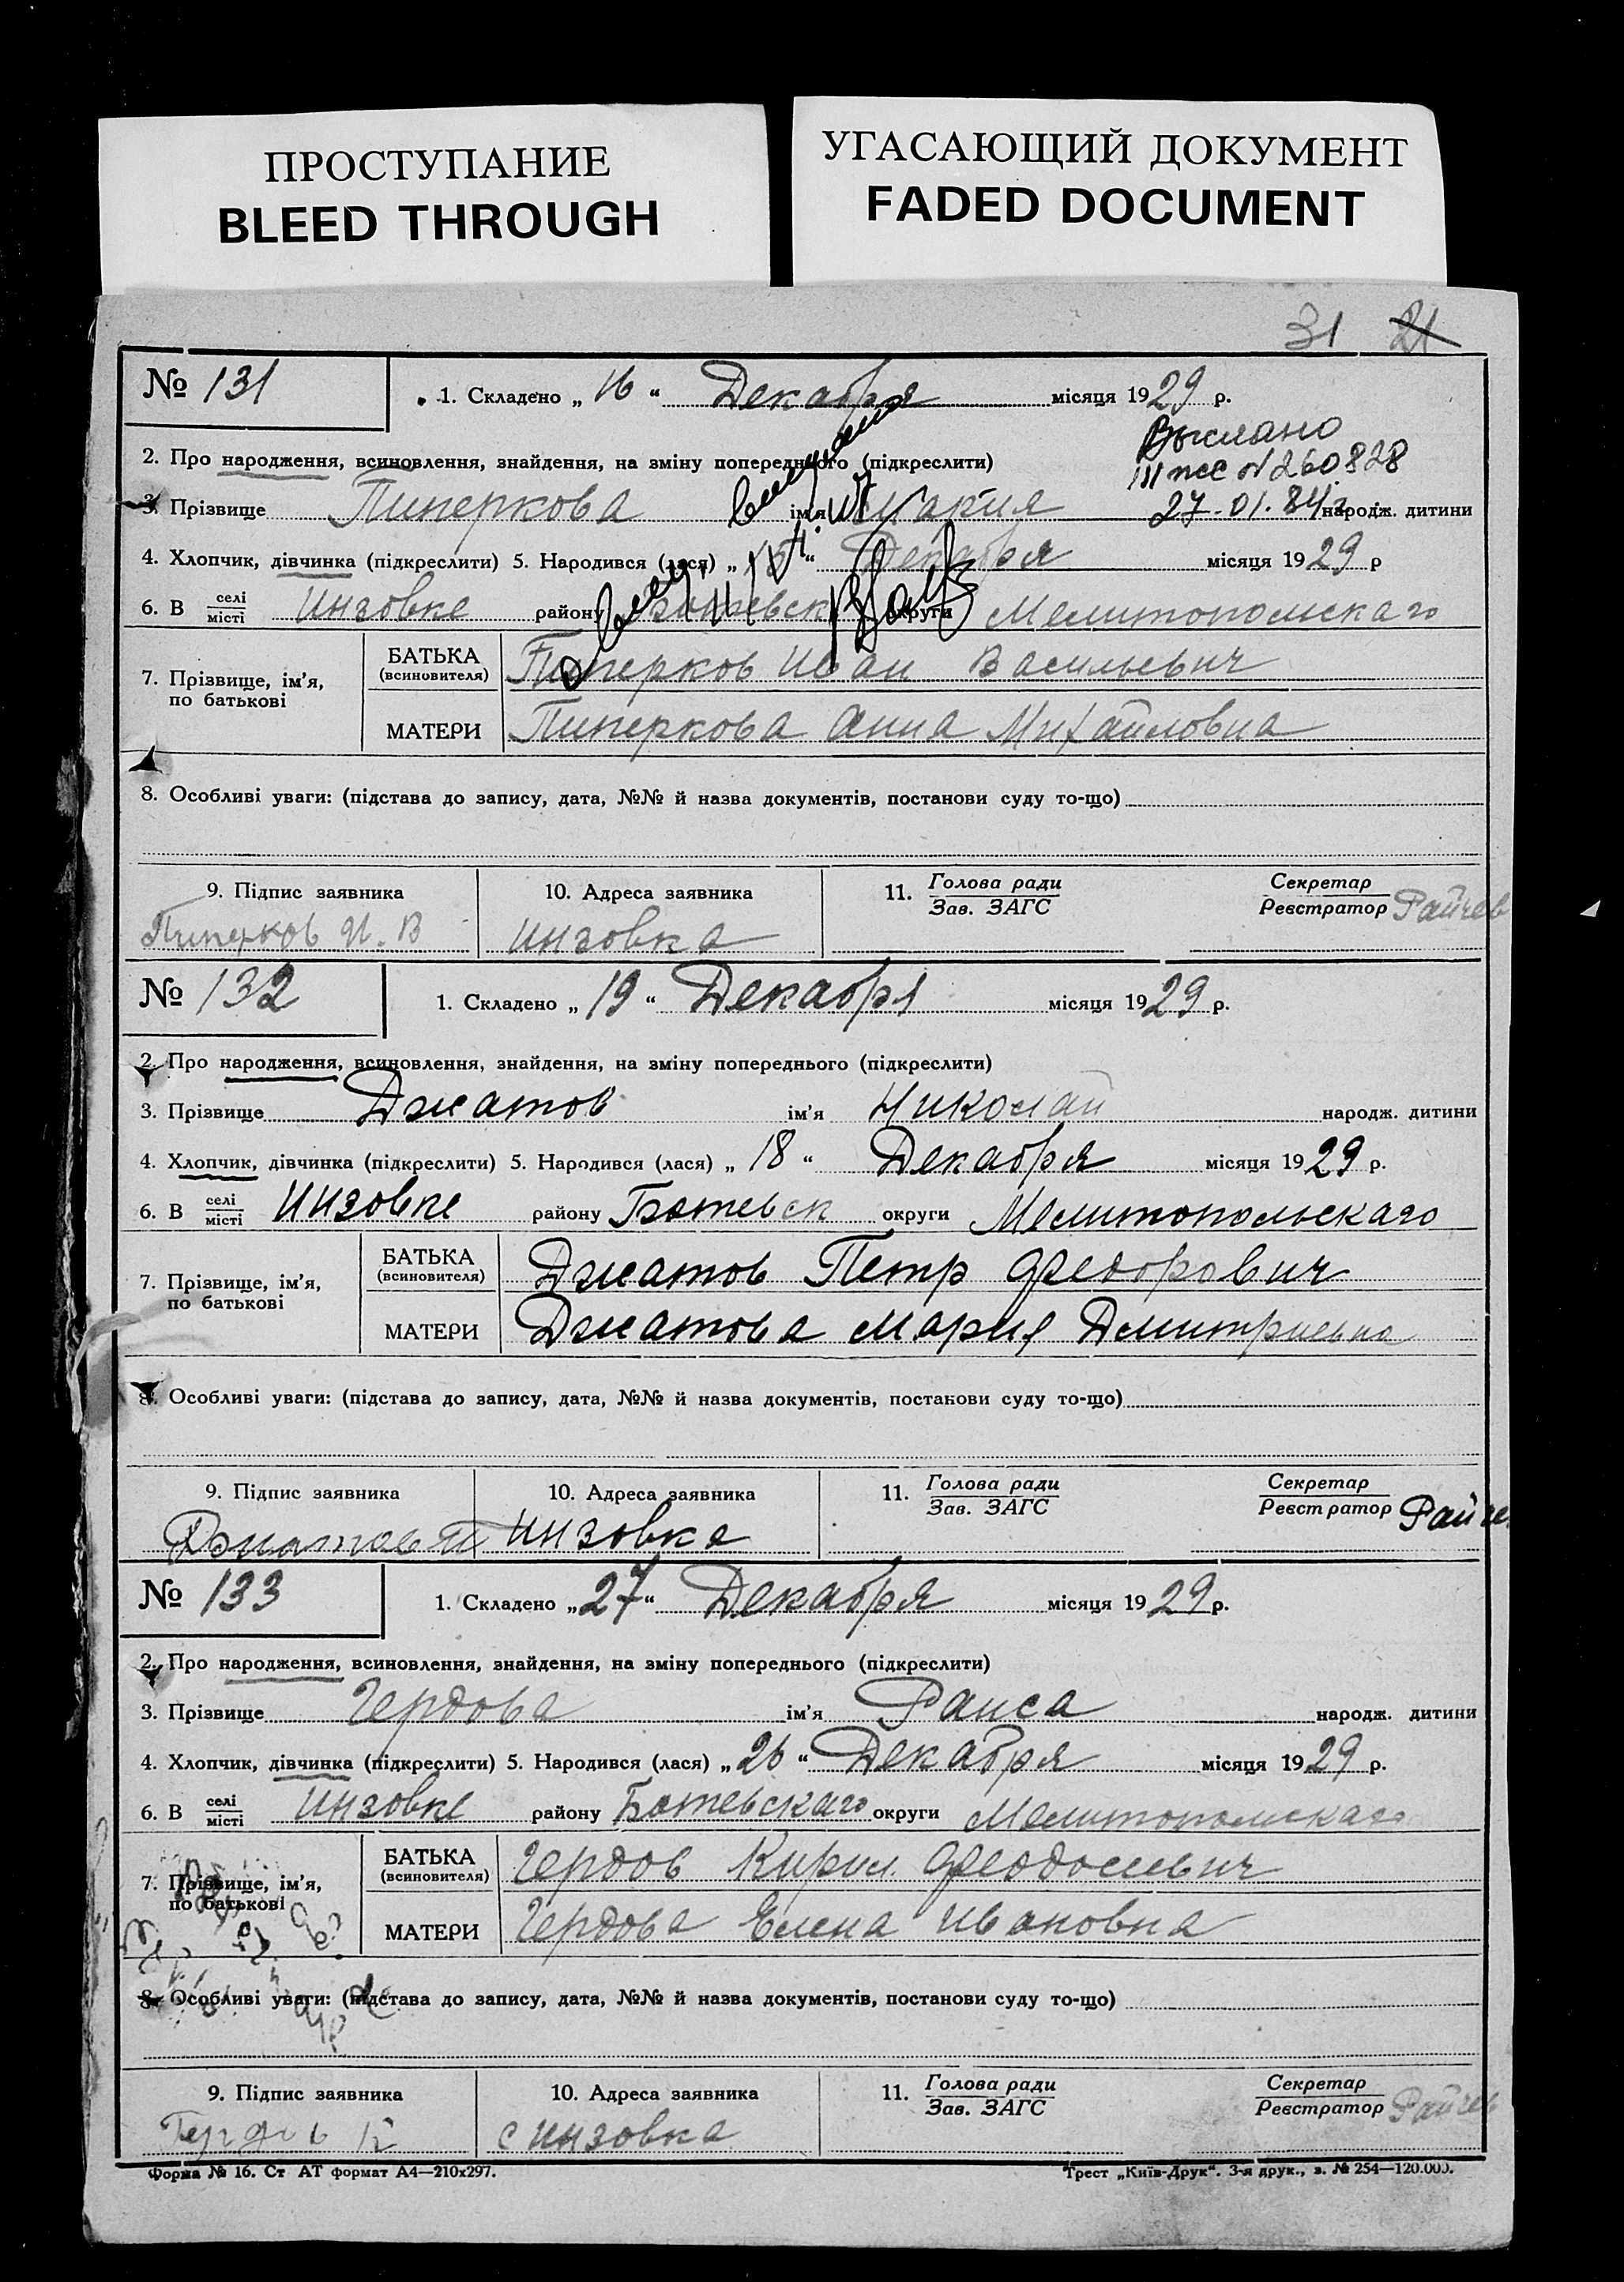 ПРОСТУПАНИЕ
BLEED THROUGH
УГАСАЮЩИЙ ДОКУМЕНТ
FADED DOCUMENT
31 21
№ 131
1. Складено „ 16 “ Декабря місяця 1929 р.
Выслано
2. Про народження, всиновлення, знайдення, на зміну попереднього (підкреслити)
№ 260828
3. Прізвище Пиперкова ім'я Мария народж. дитини
27.01.84г.
4. Хлопчик, дівчинка (підкреслити) 5. Народився (лася) „ “ Декабря місяця 1929 р
6. В селі/місті Инзовке району Ботевск округи Мелитопольскаго
7. Прізвище, ім'я, по батькові
БАТЬКА (всиновителя) Пиперков Иван Васильевич
МАТЕРИ Пиперкова Анна Михайловна
8. Особливі уваги: (підстава до запису, дата, №№ й назва документів, постанови суду то-що)
9. Підпис заявника 10. Адреса заявника 11. Голова ради/Зав. ЗАГС Секретар/Реєстратор Райчев
Пиперков И. В Инзовка
№ 132
1. Складено „ 19 “ Декабря місяця 1929 р.
2. Про народження, всиновлення, знайдення, на зміну попереднього (підкреслити)
3. Прізвище Джатов ім'я Николай народж. дитини
4. Хлопчик, дівчинка (підкреслити) 5. Народився (лася) „ 18 “ Декабря місяця 1929 р.
6. В селі/місті Инзовке району Ботевск округи Мелитопольскаго
7. Прізвище, ім'я, по батькові
БАТЬКА (всиновителя) Джатов Петр Федорович
МАТЕРИ Джатова Мария Дмитриевна
8. Особливі уваги: (підстава до запису, дата, №№ й назва документів, постанови суду то-що)
9. Підпис заявника 10. Адреса заявника 11. Голова ради/Зав. ЗАГС Секретар/Реєстратор Райче
Джатов П Инзовка
№ 133
1. Складено „ 27 “ Декабря місяця 1929 р.
2. Про народження, всиновлення, знайдення, на зміну попереднього (підкреслити)
3. Прізвище Гердова ім'я Раиса народж. дитини
4. Хлопчик, дівчинка (підкреслити) 5. Народився (лася) „ 26 “ Декабря місяця 1929 р.
6. В селі/місті Инзовке району Ботевскаго округи Мелитопольскаго
7. Прізвище, ім'я, по батькові
БАТЬКА (всиновителя) Гердов Кирил Феодосиевич
МАТЕРИ Гердова Елена Ивановна
8. Особливі уваги: (підстава до запису, дата, №№ й назва документів, постанови суду то-що)
9. Підпис заявника 10. Адреса заявника 11. Голова ради/Зав. ЗАГС Секретар/Реєстратор Райчев
Гердов К с Инзовка
Форма № 16. Ст АТ формат А4—210x297.
Трест „Київ-Друк“. 3-я друк., з. № 254—120.000.